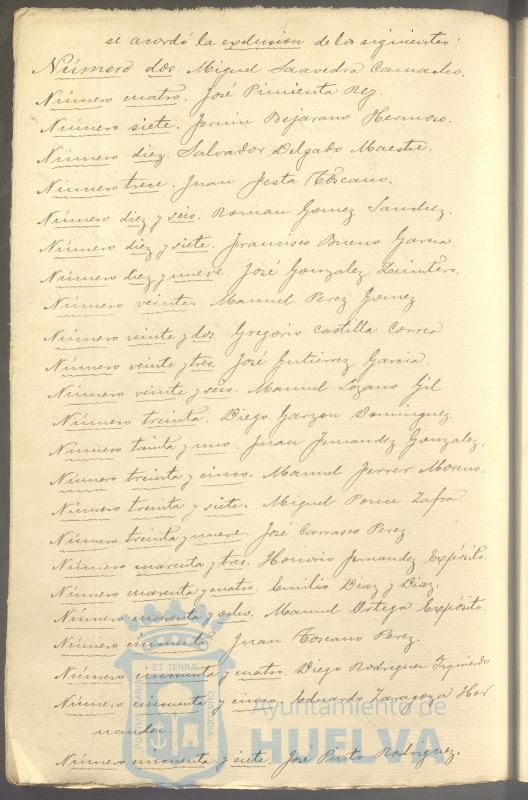 se acordó la exclusion de los siguientes:
Número dos. Miguel Saavedra Camacho.
Número cuatro. José Pimienta Rey.
Número siete. Fermin Bejarano Hermoso.
Número diez. Salvador Delgado Maestre.
Número trece. Juan Testa Toscano.
Número diez y seis. Roman Gomez Sanchez.
Número diez y siete. Francisco Bueno Garcia.
Número diez y nueve. José Gonzalez Quintero.
Número veinte. Manuel Perez Gomez
Número veinte y dos. Gregorio Castilla Correa
Número veinte y tres. José Gutierrez Garcia.
Número veinte y seis. Manuel Lozano Gil
Número treinta. Diego Garzon Dominguez.
Número treinta y uno. Juan Fernandez Gonzalez.
Número treinta y cinco. Manuel Ferrer Moreno.
Número treinta y siete. Miguel Ponce Zafra
Número treinta y nueve. José Carrasco Perez
Número cuarenta y tres. Honorio Fernandez Expósito.
Número cuarenta y cuatro. Emilio Diaz y Diaz.
Número cuarenta y ocho. Manuel Ortega Expósito.
Número cincuenta. Juan Toscano Perez.
Número cincuenta y cuatro. Diego Rodriguez Izquierdo
Número cincuenta y cinco. Eduardo Zaragoza Her
nandez.
Número cincuenta y siete. José Pinto Rodriguez.
PORTUS MARIS ET TERRÆ CUSTODIA
Ayuntamiento de
HUELVA